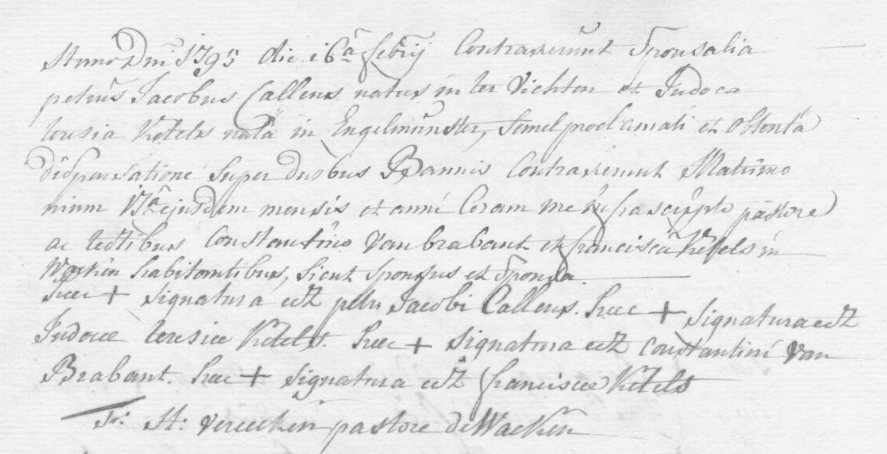 Anno Dni 1795 die 16â febrij Contraxerunt Sponsalia
petrus Jacobus Callens natus in ter Vichten et Judoca
teresia Ketels nata in Engelmunster, semel proclamati et obtenta
dispensatione super duobus Bannis Contraxerunt Matrimo
nium 17â ejusdem mensis et anni Coram me infrascripto pastore
ac testibus Constantino van brabant et francisca Ketels in
Wacken habitantibus, sicut sponsus et sponsa.
haec + signatura est petri Jacobi Callens. haec + signatura est
Judocae teresiae Ketels. haec + signatura est Constantini van
Brabant. haec + signatura est franciscae Ketels
H: pastore de Wacken